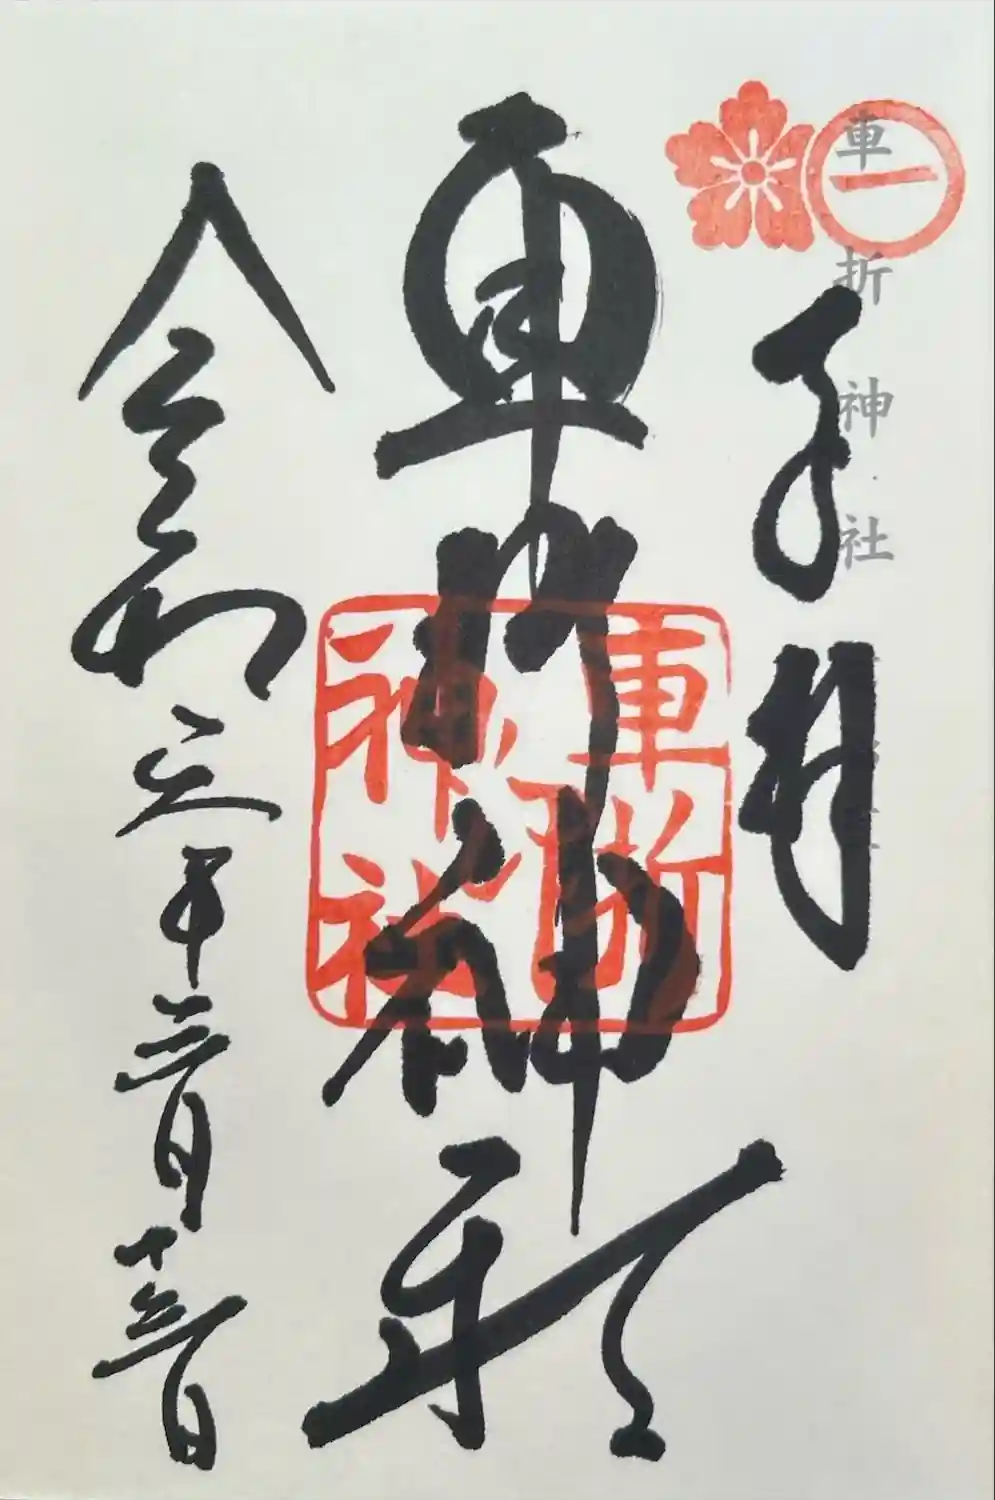 車折神社
奉拝
車折神社
車折神社
令和三年三月十三日